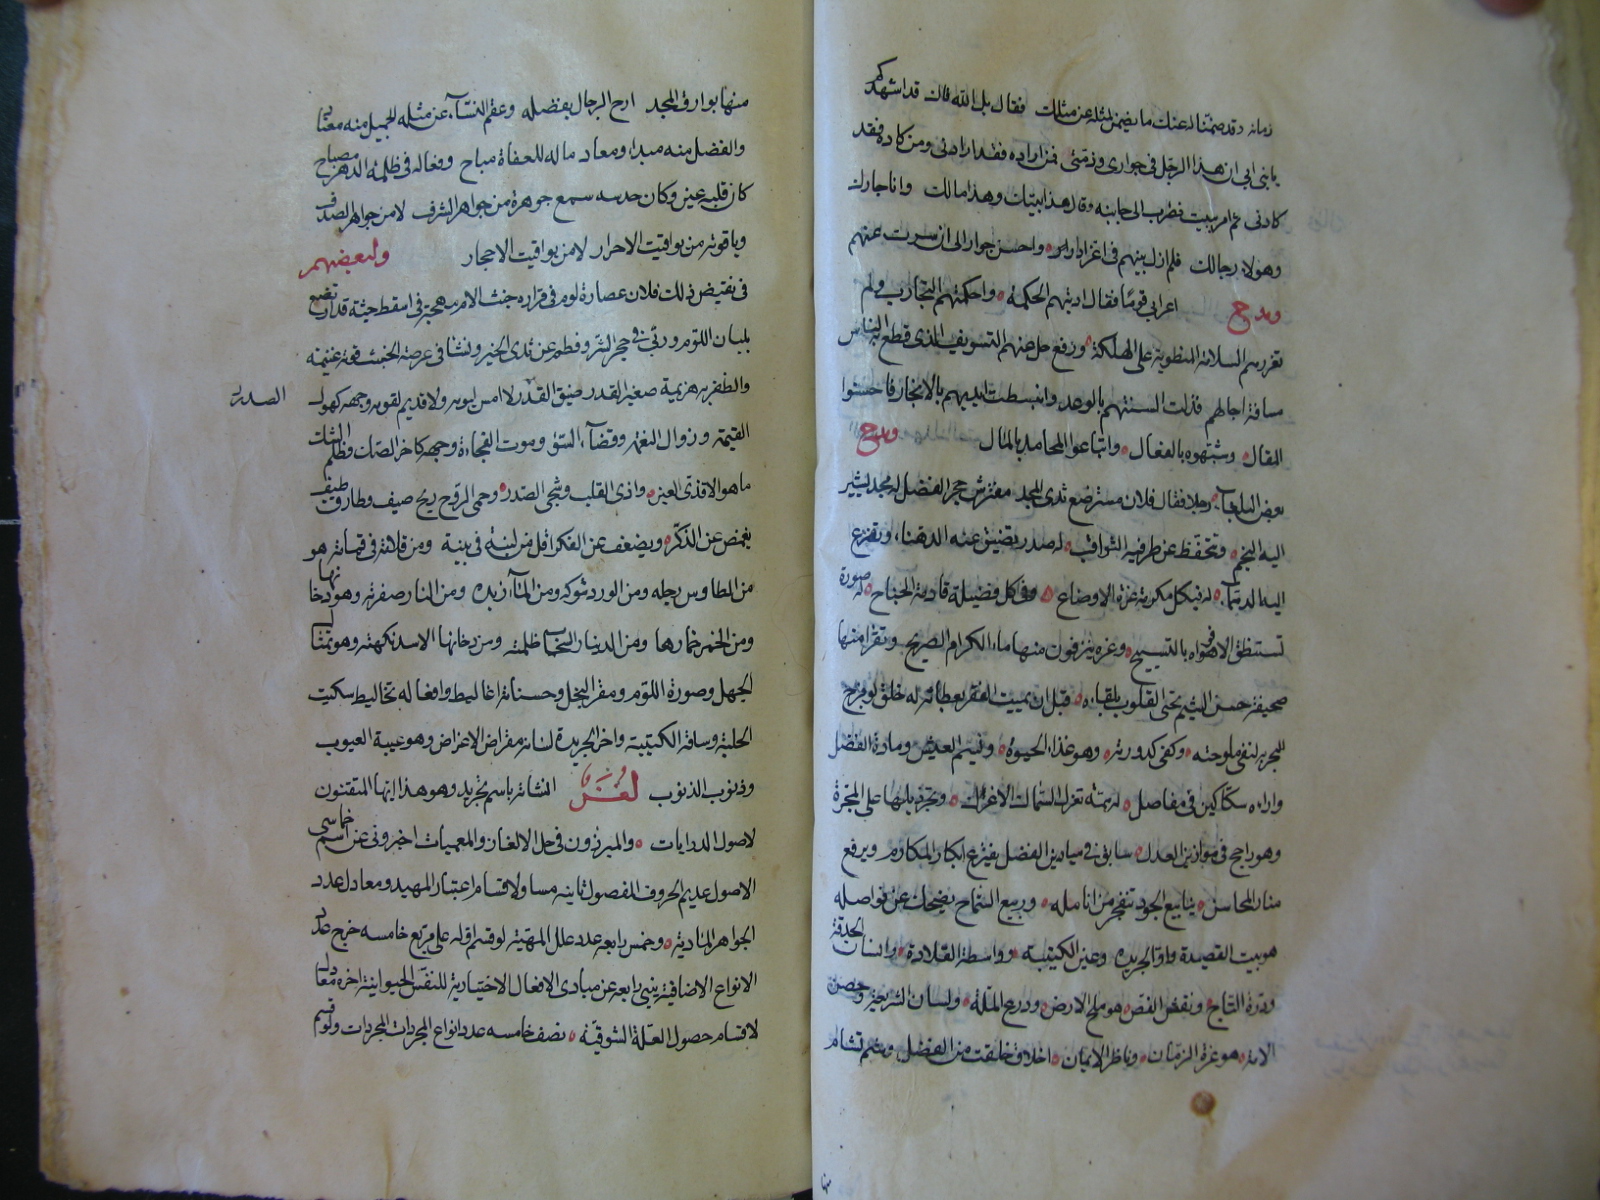 زمانه وقد ضمنا له عنك ما يضمن لمثله عن مثلك فقال بل الله فاك قد اشهدكم
يا بني ابي ان هذا الرجل في جواري وذمتي فمن اراده فقد ارادني ومن كاده فقد
كادني ثم امر ببيت فضرب الى جانبه وقال هذا بيتك وهذا مالك وانا جارك
وهولاء رجالك فلم ازل بينهم في اعز دار واحسن جوار الى ان سرت عنهم
ومدح اعرابي قوما فقال ادبتهم الحكمة واحكمتهم التجارب ولم
تغررهم السلامة المنطوية على الهلكة ورفع حل عنهم التسويف الذي قطع به الناس
مسافة اجالهم فذلت السنتهم بالوعد وانبسطت ايديهم بالانجاز فاحسنوا
المقال وشبتهوه بالفعال وابتاعوا المحامد بالمال ومدح
بعض البلغاء رجلا فقال فلان مسترضع ثدى المجد مفترش حجر الفضل له مجد يشير
اليه النجم وتخفظ عن طرفيه الثواقب له صدر تضيق عنه الدهناء وتفزع
اليه الدهماء له في كل مكرمة غرة الاوضاح وفي كل فضيلة قادمة الجناح له صورة
تستنطق الافواه بالتسبيح وغرة يترقرق منها ماء الكرام الصريح وتقرا منها
صحيفة حسن الشيم تحيى القلوب بلقائه قبل ان يميت الفقر بعطائه له خلق لو مزج
البحر به لنفى ملوحته وكفى كدورته وهو غذاء الحيوة ونسيم العيش ومادة الفضل
واراءه سكاكين في مفاصل له همة تعزل السماك الاعزل وتجر ذيلها على المجرة
وهو راجح في موازين العدل سابق في ميادين الفضل يفترع ابكار المكارم ويرفع
منار المحاسن ينابيع الجود تتفجر من انامله وربيع السماح يضحك عن فواصله
هو بيت القصيدة واول الجريدة وعين الكتيبة وواسطة القلادة وانسان الحدقة
ودرة التاج ونقش الفص هو ملح الارض ودرع الملة ولسان الشريعة وحصن
الامة هو غرة الزمان وناظر الايمان اخلاق خلقت من الفضل وشيم تشام
منها بوارق المجد ارج الرجال بفضله وعقم النساء عن مثله الجميل منه معتاد
والفضل منه مبدا ومعاد ماله للعفاة مباح وفعاله في ظلمة الدهر مصباح
كان قلبه عين وكان جسمه سمع جوهرة من جواهر الشرف لا من جواهر الصدف
وياقوتة من يواقيت الاحرار لا من يواقيت الاحجار ولبعضهم
في نقيض ذلك فلان عصارة لوم في قرارة خبث الام مهجة في اسقط جثة قد ارتضع
بلبان اللوم وربي في حجر الشر وفطم عن ثدى الخير ونشا في عرصة الخبث فوته غنيمة
والظفر به هزيمة صغير القدر ضيق الصدر لا امس ليومه ولا قديم لقومه وجهه كهول
الصدر
القيمة وزوال النعمة وقضاء السوء وموت الفجاءة وجهه كاخر الصك وظلم الشك
ما هو الا قذى العين واذى القلب وشجى الصدر وحمى الروح ريح صيف وطارق طيف
يغمض عن الذكر ويضعف عن الفكر اقل من لبنة في بينة ومن قلامة في قمامة هو
من الطاوس رجله ومن الورد شوكه ومن الماء زبده ومن النار دخانها
ومن الخمر خمارها ومن الدينار وهو تمثال
الجهل وصورة اللوم ومقر البخل وحسناته اغاليط وافعاله تخاليط سكيت
الحلبة وساقة الكتيبة واخر الجريدة لسانه مقراض الاعراض وهو عيبة العيوب
وذنوب الذنوب لغز انشاته باسم تجريد وهو هذا ايها المتقنون
لاصول الدرايات والمبرزون في حل الالغاز والمعميات اخبروني عن اسم خماسي
الاصول عديم الحروف المفصول ثانيه مساو لاقسام اعتبار المهيه ومعادل عدد
الجواهر المادية وخمس رابعه عدد علل المهية لو قسم اوله على مربع خامسه خرج عدد
الانواع الاضافية ينبي رابعه عن مبادى الافعال الاختيارية للنفس الحيوانية اخره معادل
لاقسام حصول العلة الشوقية نصف خامسه عدد انواع المجردات ولو قسم